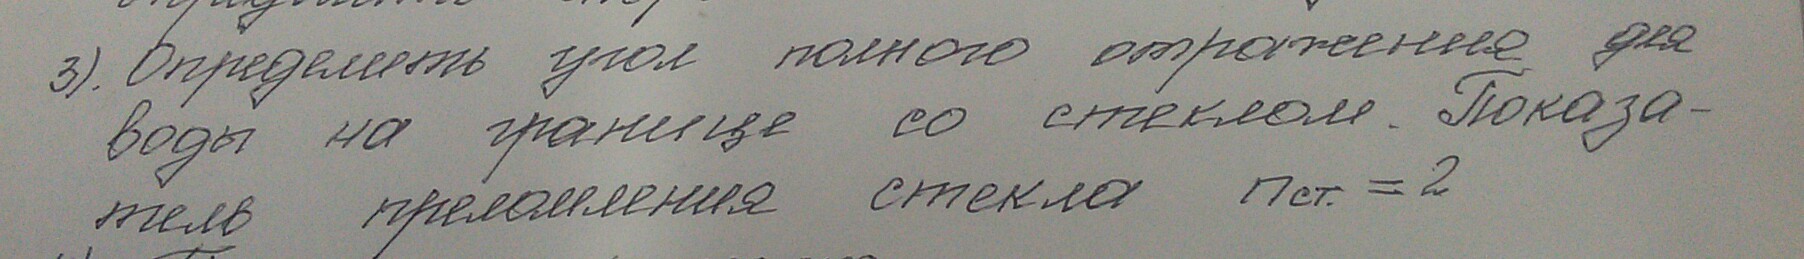 3). Определить угол полного отражения для
воды на границе со стеклом. Показа-
тель преломления стекла nст. = 2